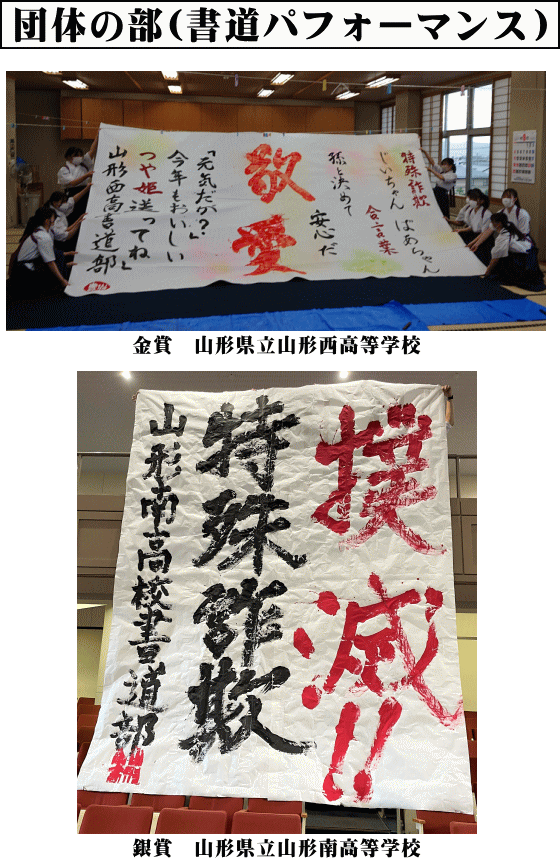 団体の部(書道パフォーマンス)
特殊詐欺
じいちゃん ばあちゃん
合言葉
孫と決めて
安心だ
敬愛
「元気だが?」
今年もおいしい
つや姫送ってね」
山形西高書道部
金賞　山形県立山形西高等学校
撲滅!!
特殊詐欺
山形南高校書道部
銀賞　山形県立山形南高等学校